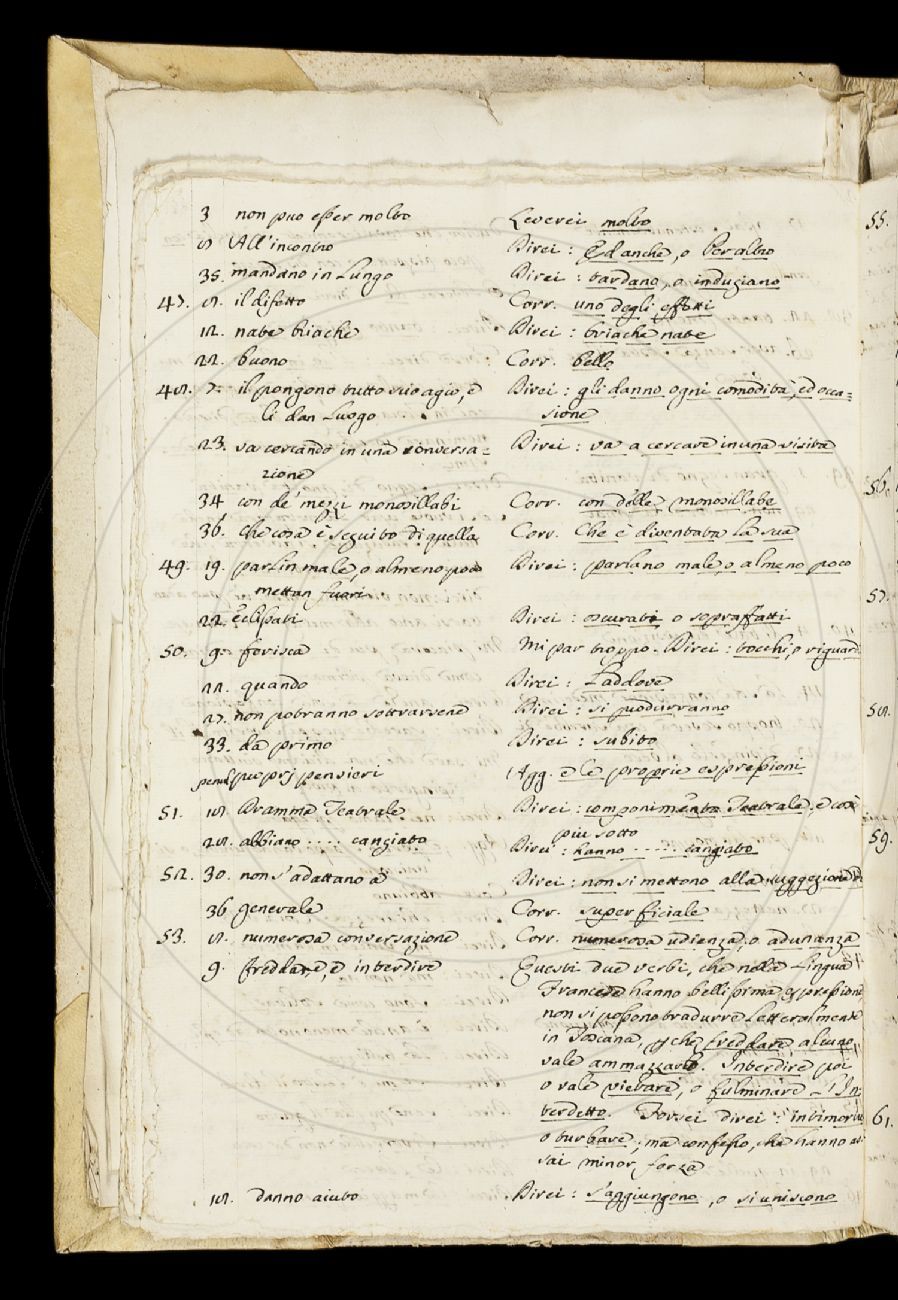 3 non puo esser molto Leverei molto
8 All'incontro Direi: Ed anche, o Per altro
35. mandano in Lungo Direi: tardano, o indugiano
47. 8. il difetto Corr. uno degli effetti
12. nate briache Direi: briache nate
22. buono Corr. belle
48. 7. il pongono tutto suo agio, e Direi: gli danno ogni comodità, ed occa=
li dan Luogo sione
23. va cercando in una conversa= Direi: va a cercare in una visita
zione
34 con de' mezzi monosillabi Corr. con delle monosillabe
36. che cosa è seguito di quella Corr. Che è diventata la sua
49. 19. parlin male, o almeno poco Direi: parlano male, o almeno poco
mettan fuori
22. eclipsati Direi: oscurati o sopraffatti
50. 9. ferisca Mi par troppo. Direi: tocchi, o riguard
22. quando Direi: Laddove
27. non potranno sottrarsene Direi: si produrranno
33. da primo Direi: subito
penul. proprj pensieri Agg. e le proprie espressioni
51. 18. Dramme Teatrale Direi: componimento Teatrale, e così
più sotto
28. abbiano .... cangiato Direi: hanno ..... cangiato
52. 30. non s'adattano a Direi: non si mettono alla suggezione di
36 generale Corr. superficiale
53. 8. numerosa conversazione Corr. numerosa udienza, o adunanza
9. freddare, e interdire Questi due verbi, che nella Lingua
Francese hanno bellissima espressione
non si possono tradurre Letteralmente
in Toscana, chè freddare alcuno,
vale ammazzarlo. Interdire poi
o vale vietare, o fulminare L'In-
terdetto. Forsei direi: intimorire
o turbare; ma confesso, che hanno as
sai minor forza
18. danno aiuto Direi: s'aggiungono, o si uniscono
55.
56.
57.
58.
59.
61.